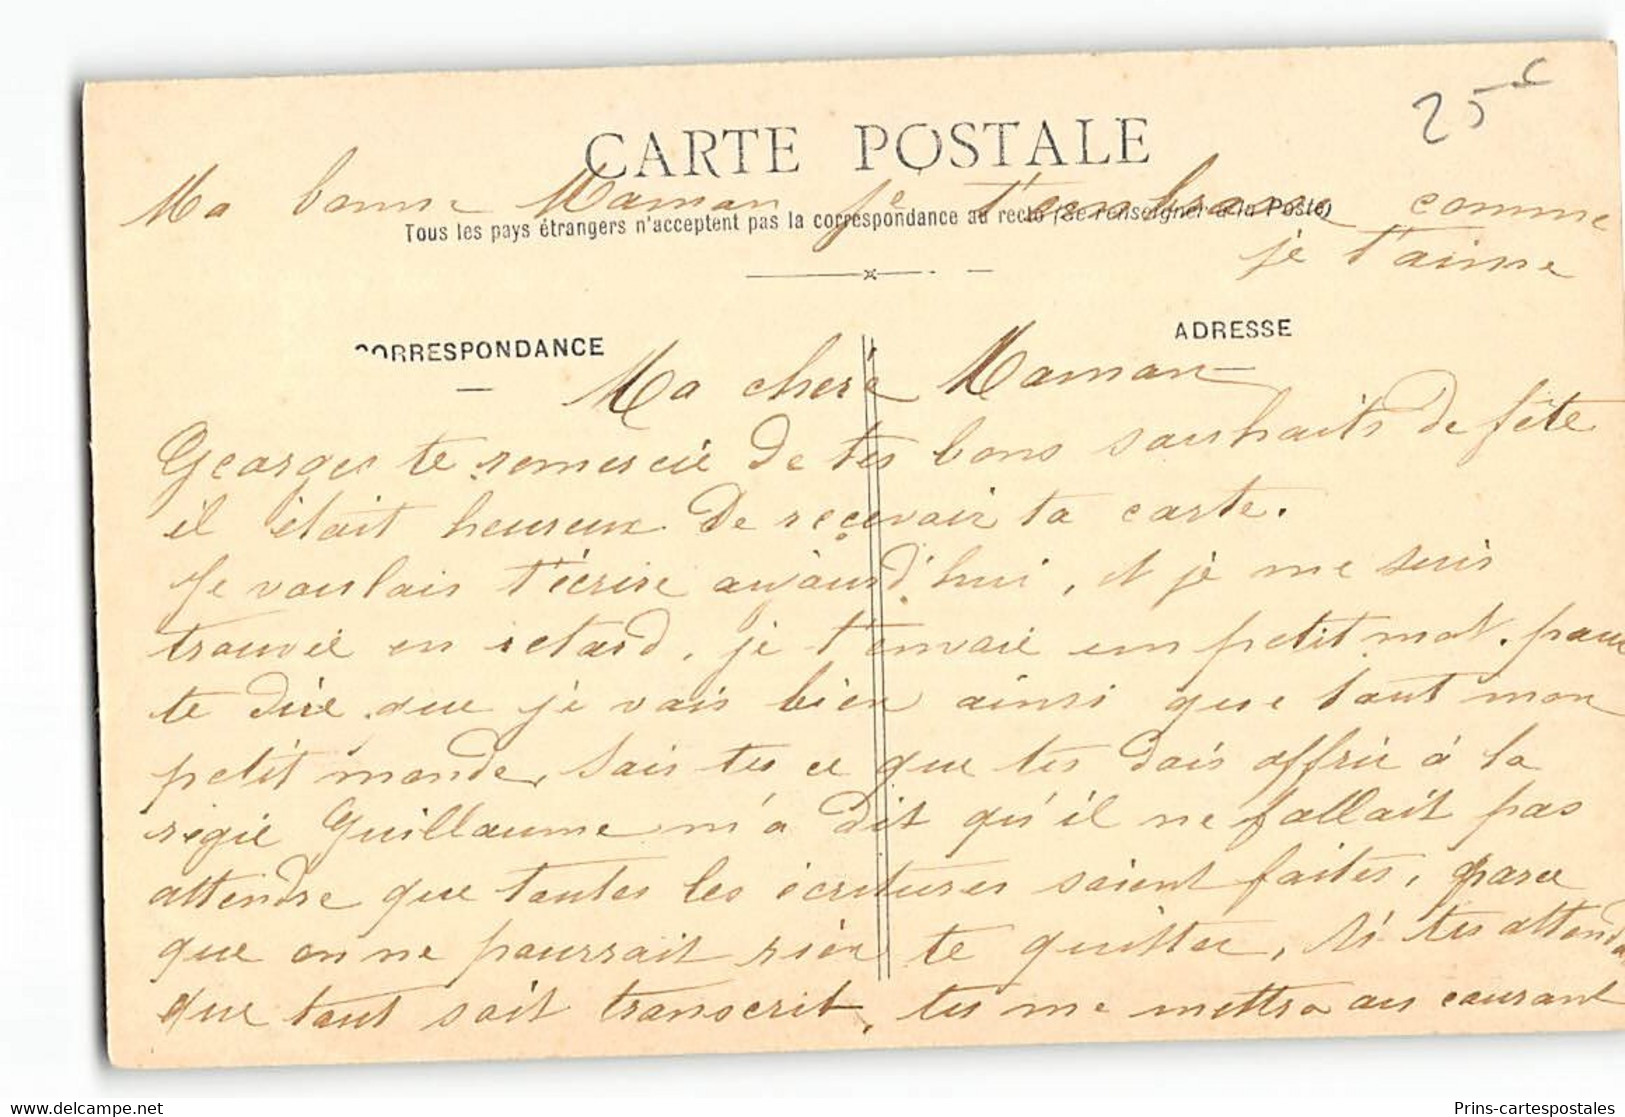 25 c
CARTE POSTALE
Ma bonne Maman je t'embrasse comme
Tous les pays étrangers n'acceptent pas la correspondance au recto (Se renseigner à la Poste)
je t'aime
CORRESPONDANCE
ADRESSE
Ma cheré Maman
Georges te remercie de tes bons souhaits de fête
il était heureux de reçevoir ta carte.
Je voulais t'écrire aujourd'hui, et je me suis
trouvée en retard, je t'envoie un petit mot. pour
te dire que je vais bien ainsi que tout mon
petit monde, Sais tu ce que tu dois offrir à la
régie Guillaume m'a dit qu'il ne fallait pas
attendre que toutes les écritures soient faites, parce
que on ne pourrait rien te quitter, Si tu attenda
que tout soit transcrit, tu me mettra au courant
Prins-cartespostales.com